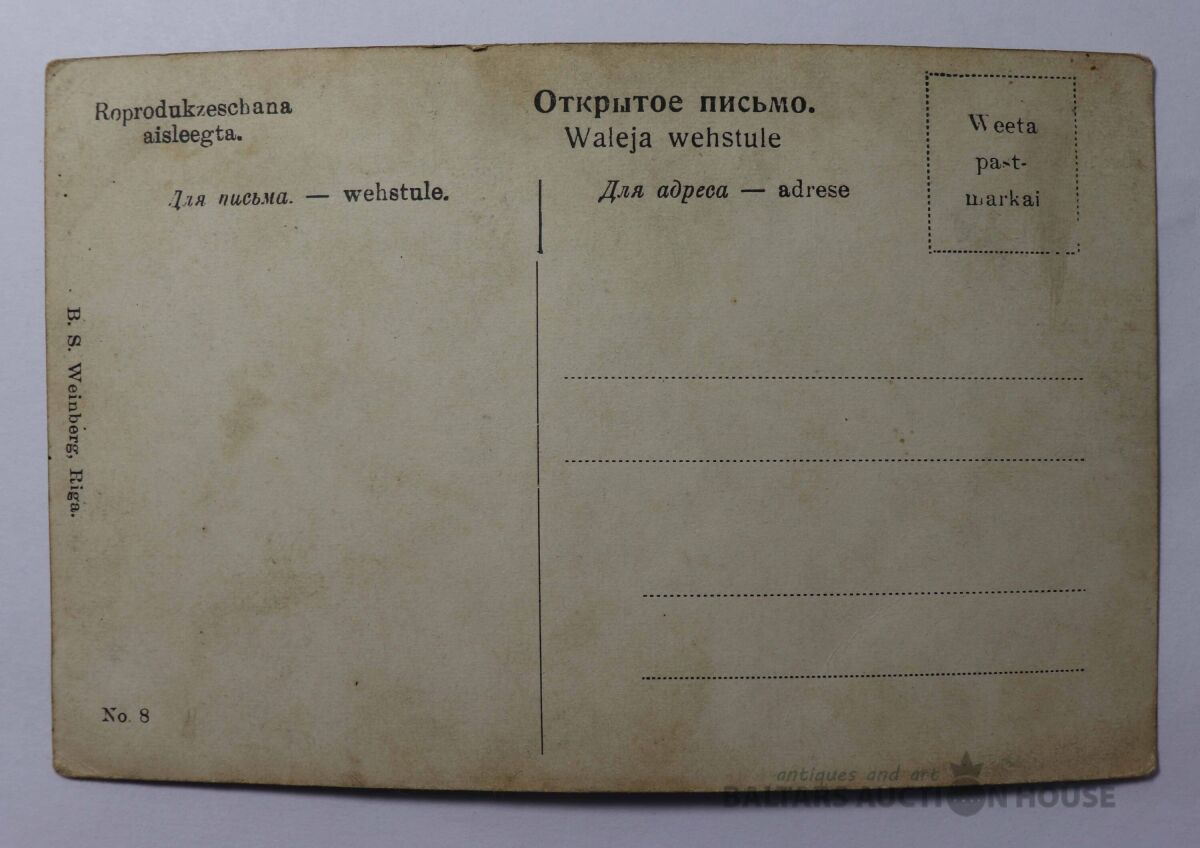 Roprodukzeschana
aisleegta.
Открытое письмо.
Waleja wehstule
Для письма. — wehstule.
Для адреса — adrese
Weeta
past-
markai
B. S. Weinberg, Riga.
No. 8
antiques and art
BALTARS AUCTION HOUSE